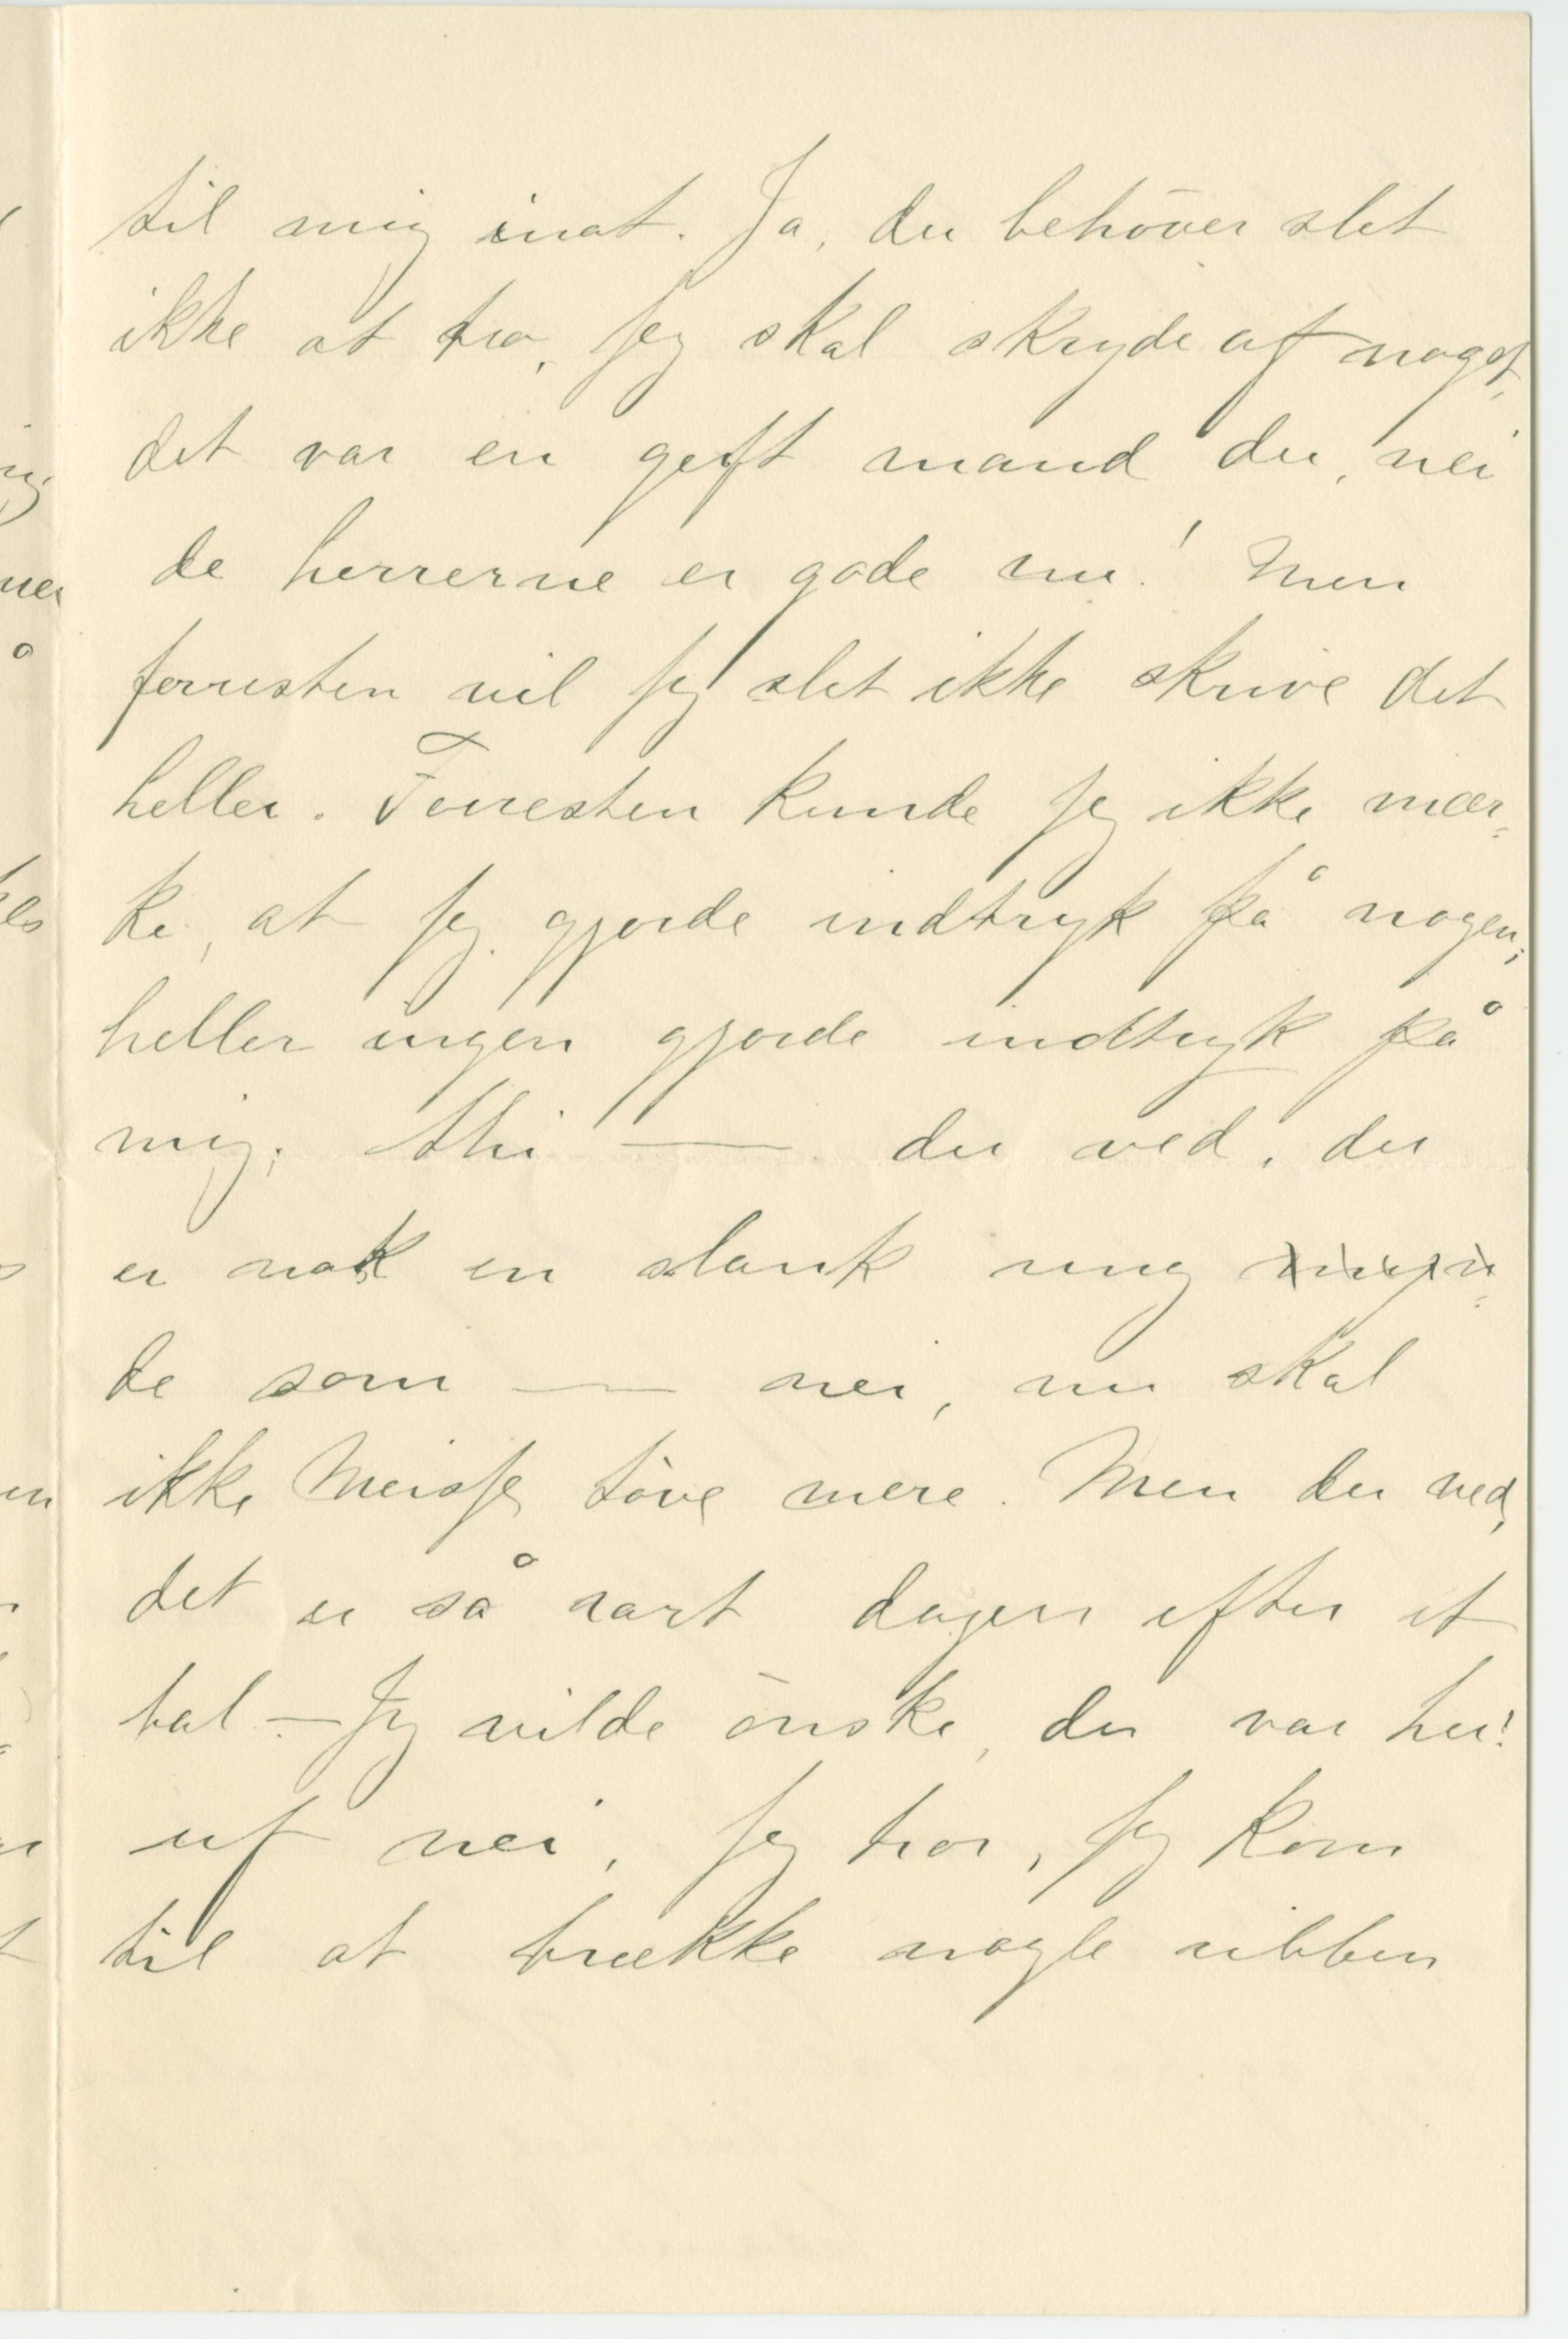 til mig inat. Ja, du behöver slet
ikke at tro, jeg skal skryde af noget,
det var en gift mand du, nei
de herrerne er gode nu! Men
forresten vil jeg slet ikke skrive det
heller. Forresten kunde jeg ikke mær=
ke, at jeg gjorde indtryk på nogen;
heller ingen gjorde indtryk på
mig; thi — du ved, du
er nok en slank ung
de som — nei, nu skal
ikke töve mere. Men du ved,
det er så rart dagen efter et
bal — Jeg vilde önske, du var her!
uf nei, jeg tror, jeg kom
til at brække nogle ribben